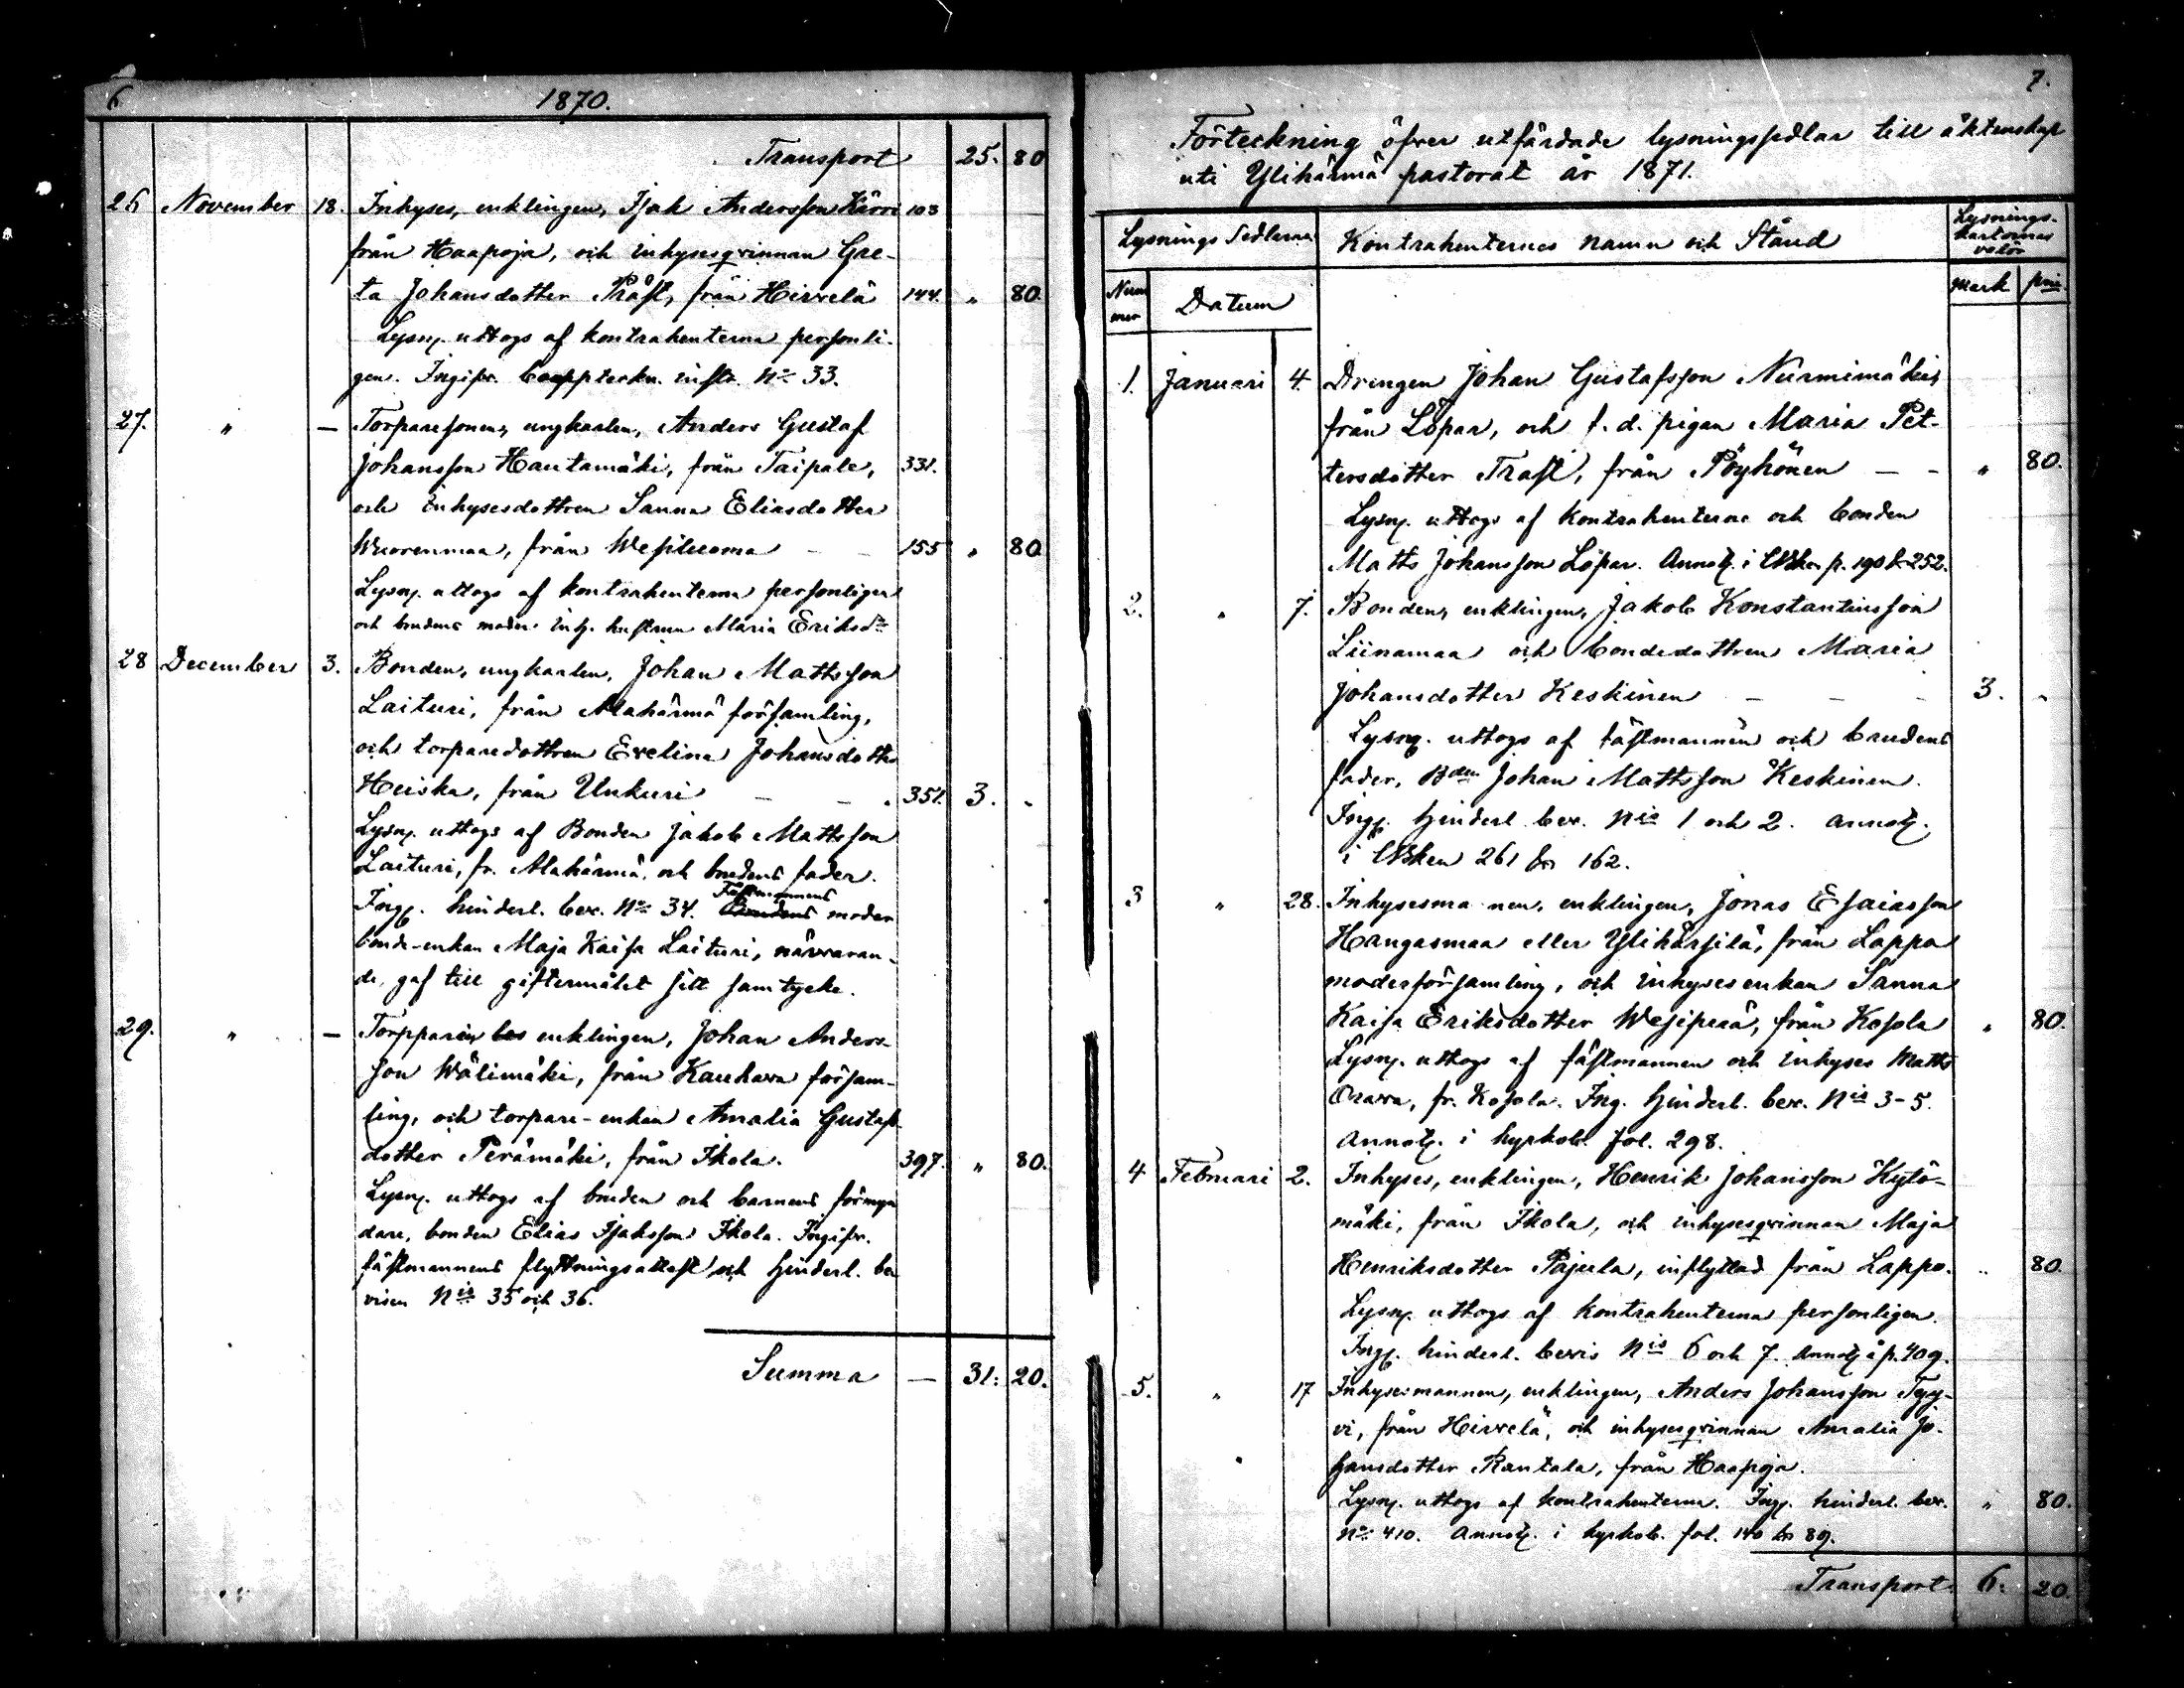 6 1870.
Transport 25. 80
26 November 18. Inhyses, enklingen, Isak Andersson Kärri 103
från Haapoja, och inhysesqvinnan Gre-
ta Johansdotter Präst, från Hirvelä 144. " 80.
Lysn. uttogs af kontrahenterna personli-
gen. Ingifv. bouppteckn. instr. No 33.
27. " — Torparesonen, ungkarlen, Anders Gustaf
Johansson Hautamäki, från Taipale, 331.
och Inhysesdottren Sanna Eliasdotter
Wuorenmaa, från Wesiluoma — — 155 " 80
Lysn. uttogs af kontrahenterna personligen
och brudens moder inh. hustrun Maria Eriksdr
28 December 3. Bonden, ungkarlen, Johan Mattsson
Laituri, från Alahärmä församling,
och torparedottren Evelina Johansdotter
Heiska, från Unkuri — — 351. 3. "
Lysn. uttogs af Bonden Jakob Mattsson
Laituri, fr. Alahärmä, och brudens fader.
Ing. hinderl. bev. No 34. Fästmannens moder
bonde-enkan Maja Kaisa Laituri, närvaran-
de, gaf till giftermålet sitt samtycke.
29. " — Torpparen enklingen, Johan Anders-
son Wälimäki, från Kauhava försam-
ling, och torpare-enkan Amalia Gustafs-
dotter Perämäki, från Ikola. 397. " 80.
Lysn. uttogs af bruden och barnens förmyn
dare, bonden Elias Isaksson Ikola. Ingifv.
fästmannens flyttningsattest och hinderl. be
visen Nis 35 och 36.
Summa — 31: 20.
7.
Förteckning öfver utfärdade lysningssedlar till äktenskap
uti Ylihärmä pastorat år 1871.
Lysnings Sedlarna Kontrahenternes namn och Stånd Lysnings-
kartornas
valör
Num
mer Datum Mark pni
1. Januari 4. Drengen Johan Gustafsson Nurmimäki,
från Löpar, och f.d. pigan Maria Pet-
tersdotter Trast, från Pöyhönen — — " 80.
Lysn. uttogs af kontrahenterne och bonden
Matts Johansson Löpar. Annot. i kbken p. 190 & 252.
2. " 7. Bonden, enklingen, Jakob Konstantinsson
Liinamaa och bondedottren Maria
Johansdotter Keskinen — — — 3. "
Lysn. uttogs af fästmannen och brudens
fader, Bden Johan Mattsson Keskinen.
Ing. hinderl. bev. Nis 1 och 2. annot.
i kbken 261 & 162.
3 " 28. Inhysesmannen, enklingen, Jonas Esaiasson
Hangasmaa eller Ylihärsilä, från Lappo
moderförsamling, och inhysesenkan Sanna
Kaisa Eriksdotter Wesiperä, från Kosola " 80.
Lysn. uttogs af fästmannen och inhyses Matts
Orava, fr. Kosola. Ing. hinderl. bev. Nis 3-5.
Annot. i kyrkob. fol. 298.
4 Februari 2. Inhyses, enklingen, Henrik Johansson Kytö-
mäki, från Ikola, och inhysesqvinnan Maja
Henriksdotter Pajula, inflyttad från Lappo. " 80.
Lysn. uttogs af kontrahenterna personligen.
Ing. hinderl. bevis Nis 6 och 7. Annot. å p. 409.
5. " 17 Inhysesmannen, enklingen, Anders Johansson Tyy-
vi, från Hirvelä, och inhysesqvinnan Amalia Jo-
hansdotter Rantala, från Haapoja.
Lysn. uttogs af kontrahenterna. Ing. hinderl. bev. " 80.
No 410. Annot. i kyrkob. fol. 140 & 89.
Transport. 6: 20.